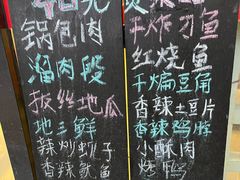 锅包肉
溜肉段
拔丝地瓜
地三鲜
辣炒蚬子
香辣鱿鱼
干炸刁鱼
红烧鱼
干煸豆角
香辣土豆片
香辣鸡
小酥肉
烧